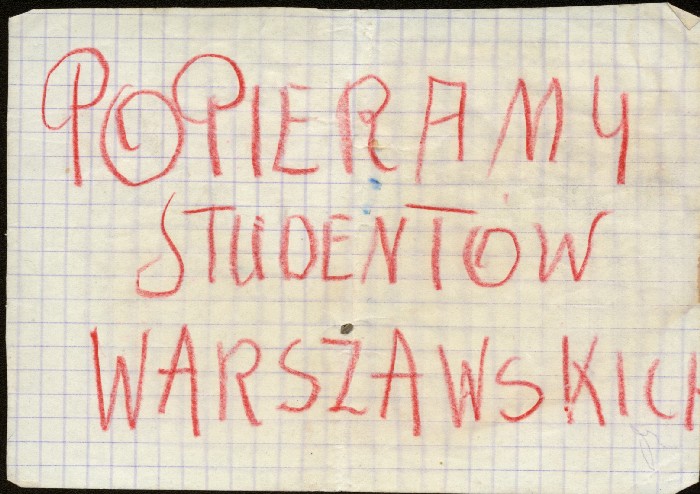 POPIERAMY
STUDENTÓW
WARSZAWSKICH